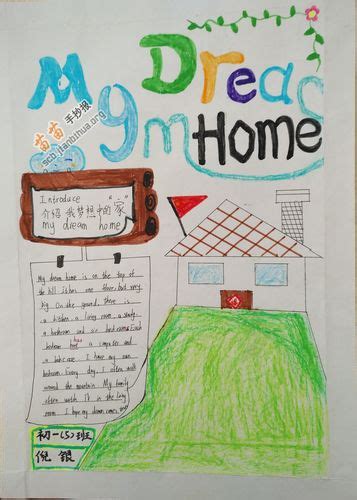 My Dream
Home
苗苗手抄报
scb.jianbihua.org
Introduce
介绍我梦想中的“家”
my dream home
My dream home is on the top of
the hill. It has one floor, but very
big. On the ground, there is
a kitchen, a living room, a study,
a bathroom and six bedrooms. Each
bedroom has a computer and
a bookcase. I have my own
bedroom. Every day, I often walk
around the mountain. My family
often watch TV in the living
room. I hope my dream comes
初一(5)班
倪银